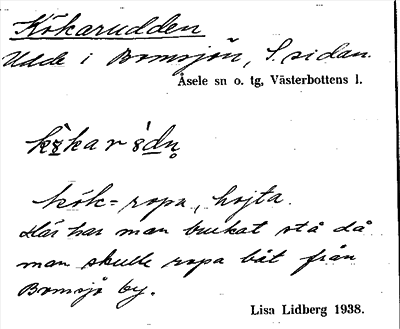 Kökarudden
Udde i Bomsjön, S. sidan.
Åsele sn o. tg, Västerbottens l.
kök = ropa, hojta.
Här har man brukat stå då
man skulle ropa båt från
Bomsjö by.
Lisa Lidberg 1938.